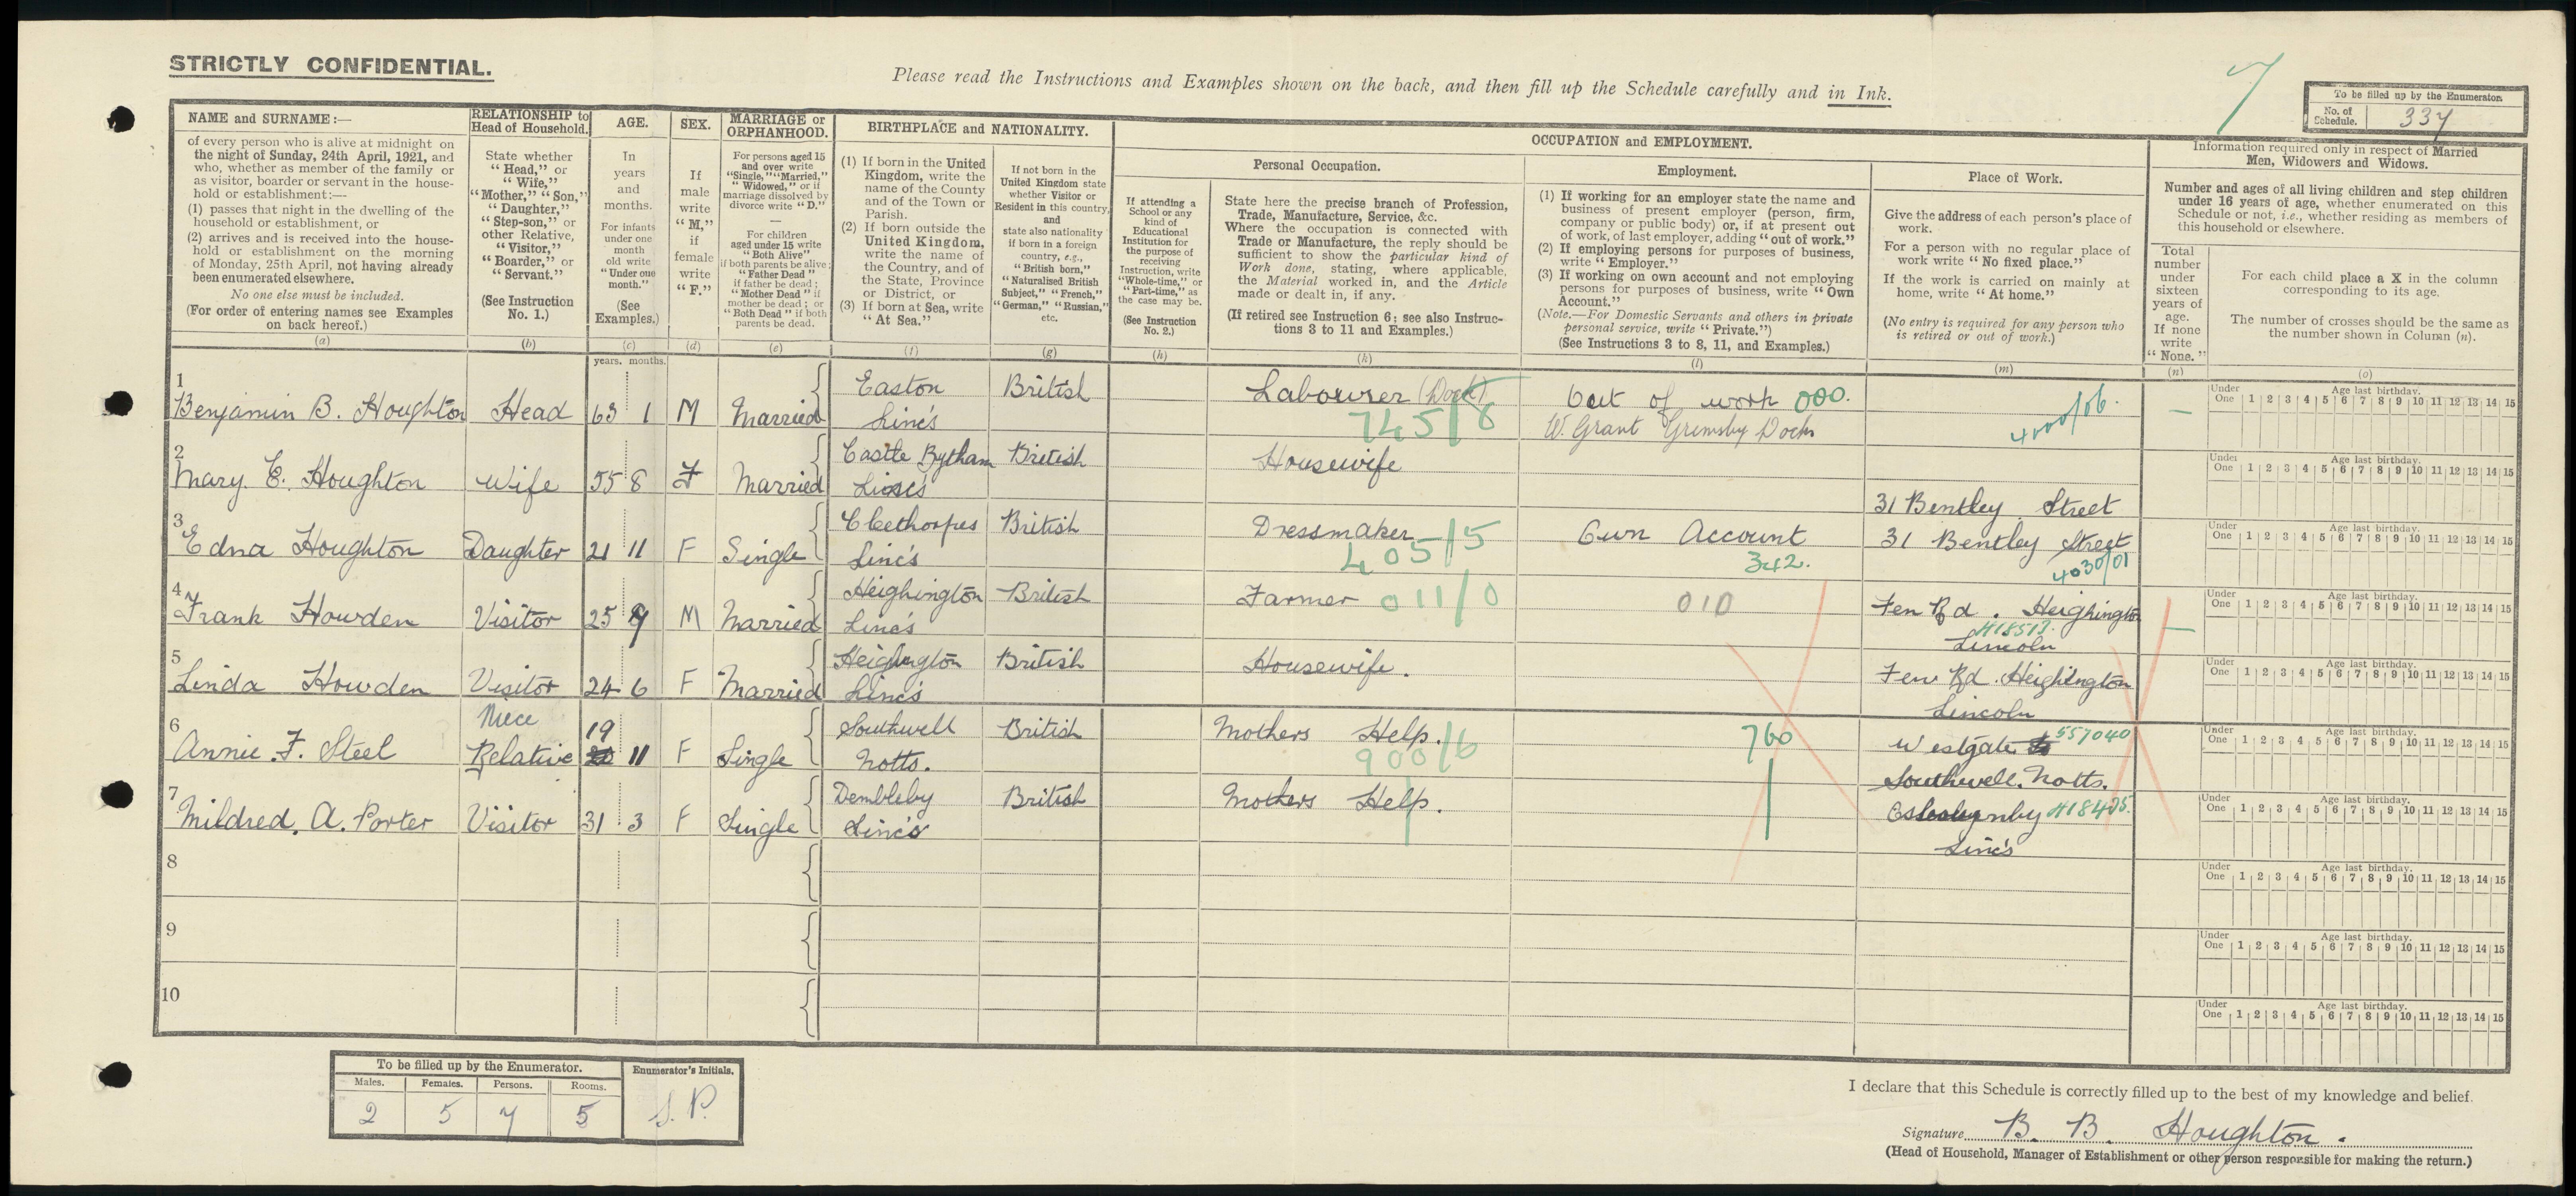 STRICTLY CONFIDENTIAL.
Please read the Instructions and Examples shown on the back, and then fill up the Schedule carefully and in Ink.
7
To be filled up by the Enumerator.
No. of Schedule. 337
NAME and SURNAME :—
of every person who is alive at midnight on
the night of Sunday, 24th April, 1921, and
who, whether as member of the family or
as visitor, boarder or servant in the house-
hold or establishment:—
(1) passes that night in the dwelling of the
household or establishment, or
(2) arrives and is received into the house-
hold or establishment on the morning
of Monday, 25th April, not having already
been enumerated elsewhere.
No one else must be included.
(For order of entering names see Examples
on back hereof.)
(a)
RELATIONSHIP to
Head of Household.
State whether
"Head," or
"Wife,"
"Mother," "Son,"
"Daughter,"
"Step-son," or
other Relative,
"Visitor,"
"Boarder," or
"Servant."
(See Instruction
No. 1.)
(b)
AGE.
In
years
and
months.
For infants
under one
month
old write
"Under one
month."
(See
Examples.)
(c)
years. months.
SEX.
If
male
write
"M,"
if
female
write
"F."
(d)
MARRIAGE or
ORPHANHOOD.
For persons aged 15
and over write
"Single," "Married,"
"Widowed," or if
marriage dissolved by
divorce write "D."
—
For children
aged under 15 write
"Both Alive"
if both parents be alive ;
"Father Dead"
if father be dead ;
"Mother Dead" if
mother be dead ; or
"Both Dead" if both
parents be dead.
(e)
BIRTHPLACE and NATIONALITY.
(1) If born in the United
Kingdom, write the
name of the County
and of the Town or
Parish.
(2) If born outside the
United Kingdom,
write the name of
the Country, and of
the State, Province
or District, or
(3) If born at Sea, write
"At Sea."
(f)
If not born in the
United Kingdom state
whether Visitor or
Resident in this country,
and
state also nationality
if born in a foreign
country, e.g.,
"British born,"
"Naturalised British
Subject," "French,"
"German," "Russian,"
etc.
(g)
OCCUPATION and EMPLOYMENT.
Personal Occupation.
If attending a
School or any
kind of
Educational
Institution for
the purpose of
receiving
Instruction, write
"Whole-time," or
"Part-time," as
the case may be.
(See Instruction
No. 2.)
(h)
State here the precise branch of Profession,
Trade, Manufacture, Service, &c.
Where the occupation is connected with
Trade or Manufacture, the reply should be
sufficient to show the particular kind of
Work done, stating, where applicable,
the Material worked in, and the Article
made or dealt in, if any.
(If retired see Instruction 6; see also Instruc-
tions 3 to 11 and Examples.)
(k)
Employment.
(1) If working for an employer state the name and
business of present employer (person, firm,
company or public body) or, if at present out
of work, of last employer, adding "out of work."
(2) If employing persons for purposes of business,
write "Employer."
(3) If working on own account and not employing
persons for purposes of business, write "Own
Account."
(Note.—For Domestic Servants and others in private
personal service, write "Private.")
(See Instructions 3 to 8, 11, and Examples.)
(l)
Place of Work.
Give the address of each person's place of
work.
For a person with no regular place of
work write "No fixed place."
If the work is carried on mainly at
home, write "At home."
(No entry is required for any person who
is retired or out of work.)
(m)
Information required only in respect of Married
Men, Widowers and Widows.
Number and ages of all living children and step children
under 16 years of age, whether enumerated on this
Schedule or not, i.e., whether residing as members of
this household or elsewhere.
Total
number
under
sixteen
years of
age.
If none
write
"None."
(n)
For each child place a X in the column
corresponding to its age.
The number of crosses should be the same as
the number shown in Column (n).
(o)
1 Benjamin B. Houghton Head 63 1 M Married Easton Linc's British Labourer (Dock) 745/8 Out of work 000. W. Grant Grimsby Docks 4000/06. —
Under One Age last birthday. 1 2 3 4 5 6 7 8 9 10 11 12 13 14 15
2 Mary E. Houghton Wife 55 8 F Married Castle Bytham Linc's British Housewife
Under One Age last birthday. 1 2 3 4 5 6 7 8 9 10 11 12 13 14 15
31 Bentley Street
3 Edna Houghton Daughter 21 11 F Single Cleethorpes Linc's British Dressmaker 405/5 Own Account 342. 31 Bentley Street 4030/01
Under One Age last birthday. 1 2 3 4 5 6 7 8 9 10 11 12 13 14 15
4 Frank Howden Visitor 25 9 M Married Heighington Linc's British Farmer 011/0 010 Fen Rd. Heighington Lincoln 418513. —
Under One Age last birthday. 1 2 3 4 5 6 7 8 9 10 11 12 13 14 15
5 Linda Howden Visitor 24 6 F Married Heighington Linc's British Housewife. Fen Rd. Heighington Lincoln
Under One Age last birthday. 1 2 3 4 5 6 7 8 9 10 11 12 13 14 15
6 Annie. F. Steel Niece Relative 19 20 11 F Single Southwell Notts. British Mothers Help. 900/6 760 Westgate 557040 Southwell. Notts.
Under One Age last birthday. 1 2 3 4 5 6 7 8 9 10 11 12 13 14 15
7 Mildred. A. Porter Visitor 31 3 F Single Dembleby Linc's British Mothers Help. 418405. Linc's
Under One Age last birthday. 1 2 3 4 5 6 7 8 9 10 11 12 13 14 15
8
Under One Age last birthday. 1 2 3 4 5 6 7 8 9 10 11 12 13 14 15
9
Under One Age last birthday. 1 2 3 4 5 6 7 8 9 10 11 12 13 14 15
10
Under One Age last birthday. 1 2 3 4 5 6 7 8 9 10 11 12 13 14 15
To be filled up by the Enumerator.
Males. Females. Persons. Rooms.
2 5 7 5
Enumerator's Initials.
S. P.
I declare that this Schedule is correctly filled up to the best of my knowledge and belief.
Signature B. B. Houghton.
(Head of Household, Manager of Establishment or other person responsible for making the return.)